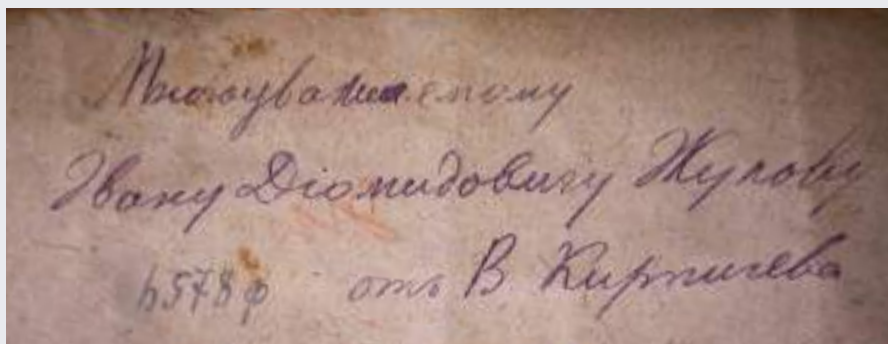 Многоуважаемому
Ивану Діомидовичу Жукову
6578ф отъ В Кирпичева